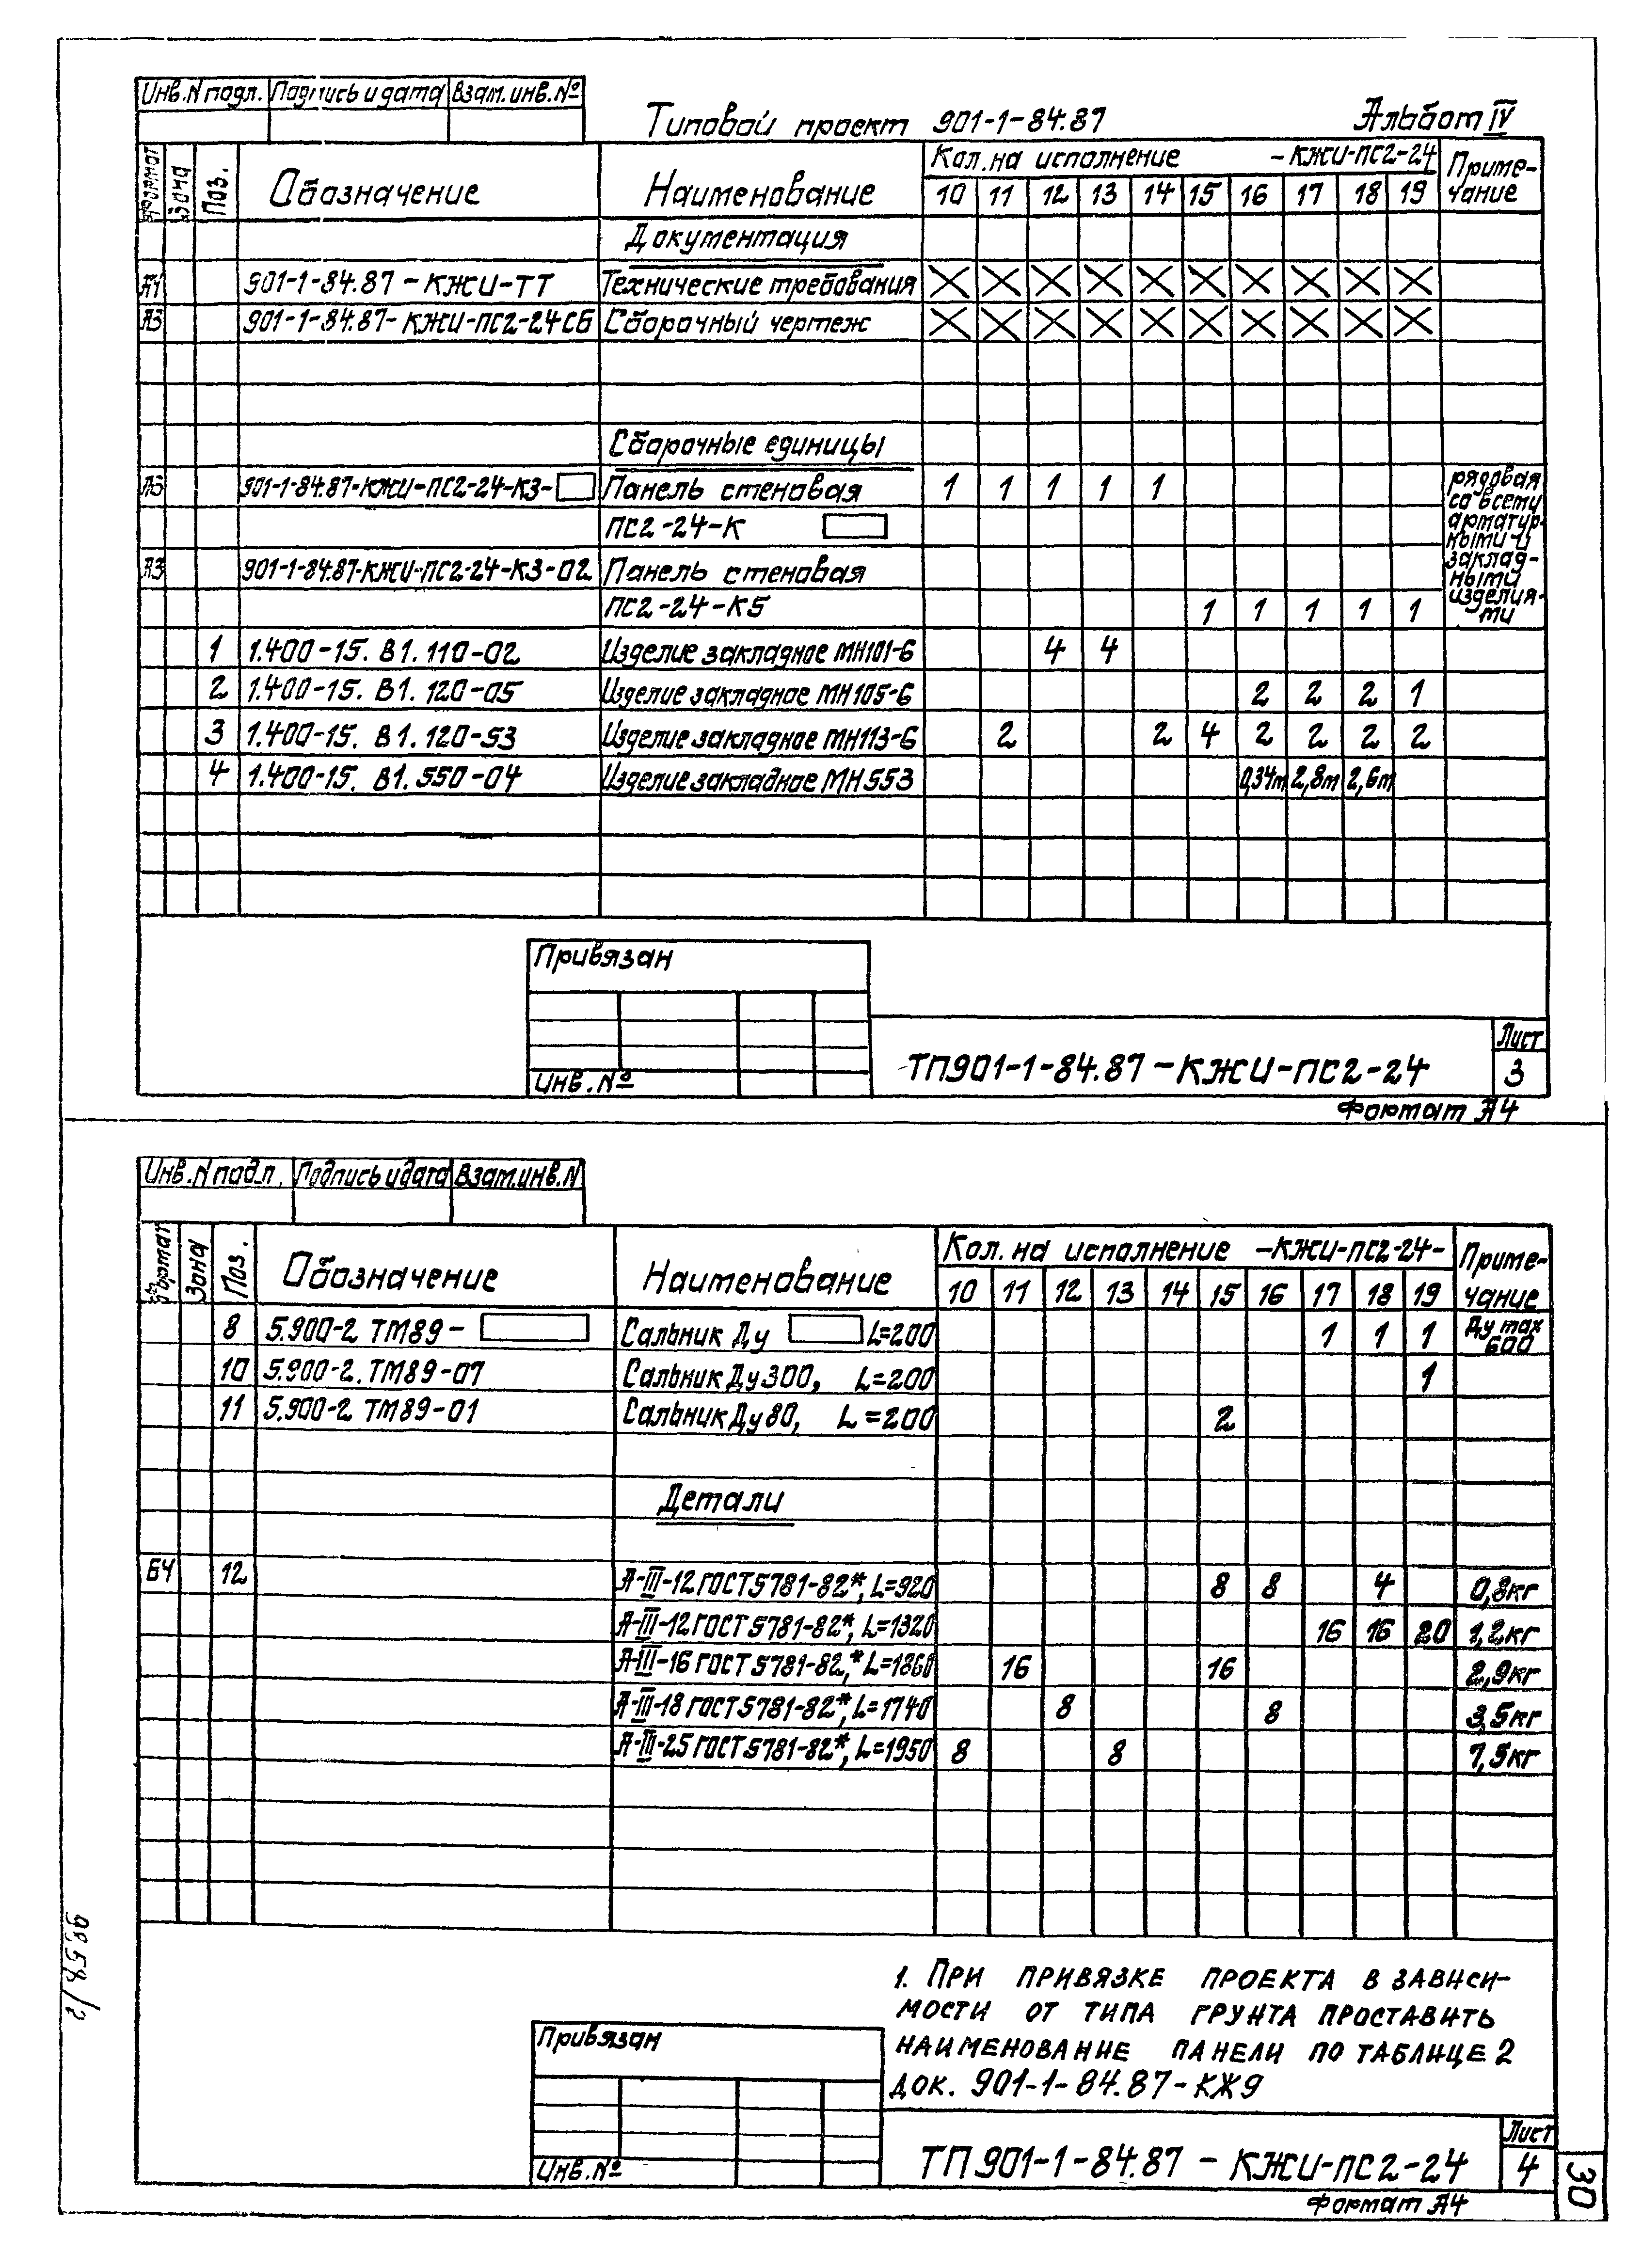 Инв.N подл. Подпись и дата Взам. инв. №
Типовой проект 901-1-84.87 Альбом IV
Формат Зона Поз. Обозначение Наименование Кол. на исполнение -КЖИ-ПС2-24 Приме-
10 11 12 13 14 15 16 17 18 19 чание
Документация
А4 901-1-84.87-КЖИ-ТТ Технические требования X X X X X X X X X X
А3 901-1-84.87-КЖИ-ПС2-24СБ Сборочный чертеж X X X X X X X X X X
Сборочные единицы
А3 901-1-84.87-КЖИ-ПС2-24-К3- Панель стеновая 1 1 1 1 1 рядовая
со всеми
ПС2-24-К арматур-
ными и
А3 901-1-84.87-КЖИ-ПС2-24-К3-02 Панель стеновая заклад-
ными
ПС2-24-К5 1 1 1 1 1 изделия-
ми
1 1.400-15. В1. 110-02 Изделие закладное МН101-6 4 4
2 1.400-15. В1. 120-05 Изделие закладное МН105-6 2 2 2 1
3 1.400-15. В1. 120-53 Изделие закладное МН113-6 2 2 4 2 2 2 2
4 1.400-15. В1. 550-04 Изделие закладное МН553 0,34м 2,8м 2,6м
Привязан
Инв. №
ТП901-1-84.87-КЖИ-ПС2-24 Лист
3
Формат А4
Инв.N подл. Подпись и дата Взам.инв.N
Формат Зона Поз. Обозначение Наименование Кол. на исполнение -КЖИ-ПС2-24- Приме-
10 11 12 13 14 15 16 17 18 19 чание
8 5.900-2 ТМ89- Сальник Ду L=200 1 1 1 Ду max
600
10 5.900-2. ТМ89-07 Сальник Ду300, L=200 1
11 5.900-2 ТМ89-01 Сальник Ду80, L=200 2
Детали
БЧ 12 А-III-12 ГОСТ 5781-82*, L=920 8 8 4 0,8кг
А-III-12 ГОСТ 5781-82*, L=1320 16 16 20 1,2кг
А-III-16 ГОСТ 5781-82,* L=1860 16 16 2,9кг
А-III-18 ГОСТ 5781-82*, L=1740 8 8 3,5кг
А-III-25 ГОСТ 5781-82*, L=1950 8 8 7,5кг
1. При привязке проекта в зависи-
мости от типа грунта проставить
наименование панели по таблице 2
док. 901-1-84.87-КЖ9
Привязан
Инв.№
ТП 901-1-84.87 - КЖИ-ПС2-24 Лист
4
Формат А4
30